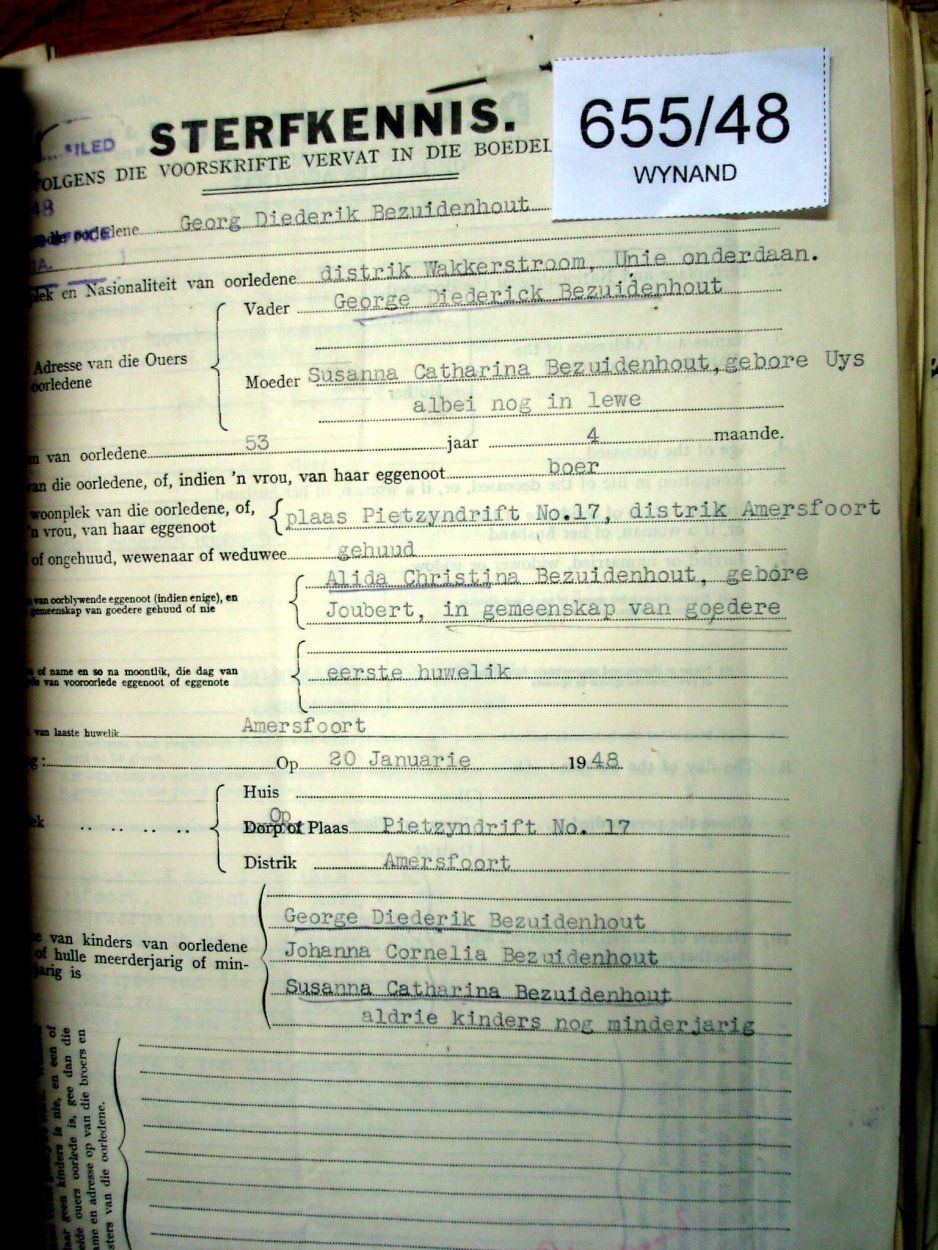 STERFKENNIS.
655/48
WYNAND
ILED
OLGENS DIE VOORSKRIFTE VERVAT IN DIE BOEDEL
48
Georg Diederik Bezuidenhout
en Nasionaliteit van oorledene distrik Wakkerstroom, Unie onderdaan.
Vader George Diederick Bezuidenhout
Adresse van die Ouers
oorledene
Moeder Susanna Catharina Bezuidenhout, gebore Uys
albei nog in lewe
van oorledene 53 jaar 4 maande.
van die oorledene, of, indien 'n vrou, van haar eggenoot boer
woonplek van die oorledene, of,
'n vrou, van haar eggenoot
plaas Pietzyndrift No.17, distrik Amersfoort
of ongehuud, wewenaar of weduwee gehuud
van oorblywende eggenoot (indien enige), en
gemeenskap van goedere gehuud of nie
Alida Christina Bezuidenhout, gebore
Joubert, in gemeenskap van goedere
of name en so na moontlik, die dag van
van vooroorlede eggenoot of eggenote
eerste huwelik
van laaste huwelik Amersfoort
Op 20 Januarie 1948
Huis
Op
Dorp of Plaas Pietzyndrift No. 17
Distrik Amersfoort
van kinders van oorledene
of hulle meerderjarig of min-
jarig is
George Diederik Bezuidenhout
Johanna Cornelia Bezuidenhout
Susanna Catharina Bezuidenhout
aldrie kinders nog minderjarig
geen kinders is nie, en een of
ouers oorlede is, gee dan die
en adresse op van die broers en
van die oorledene.